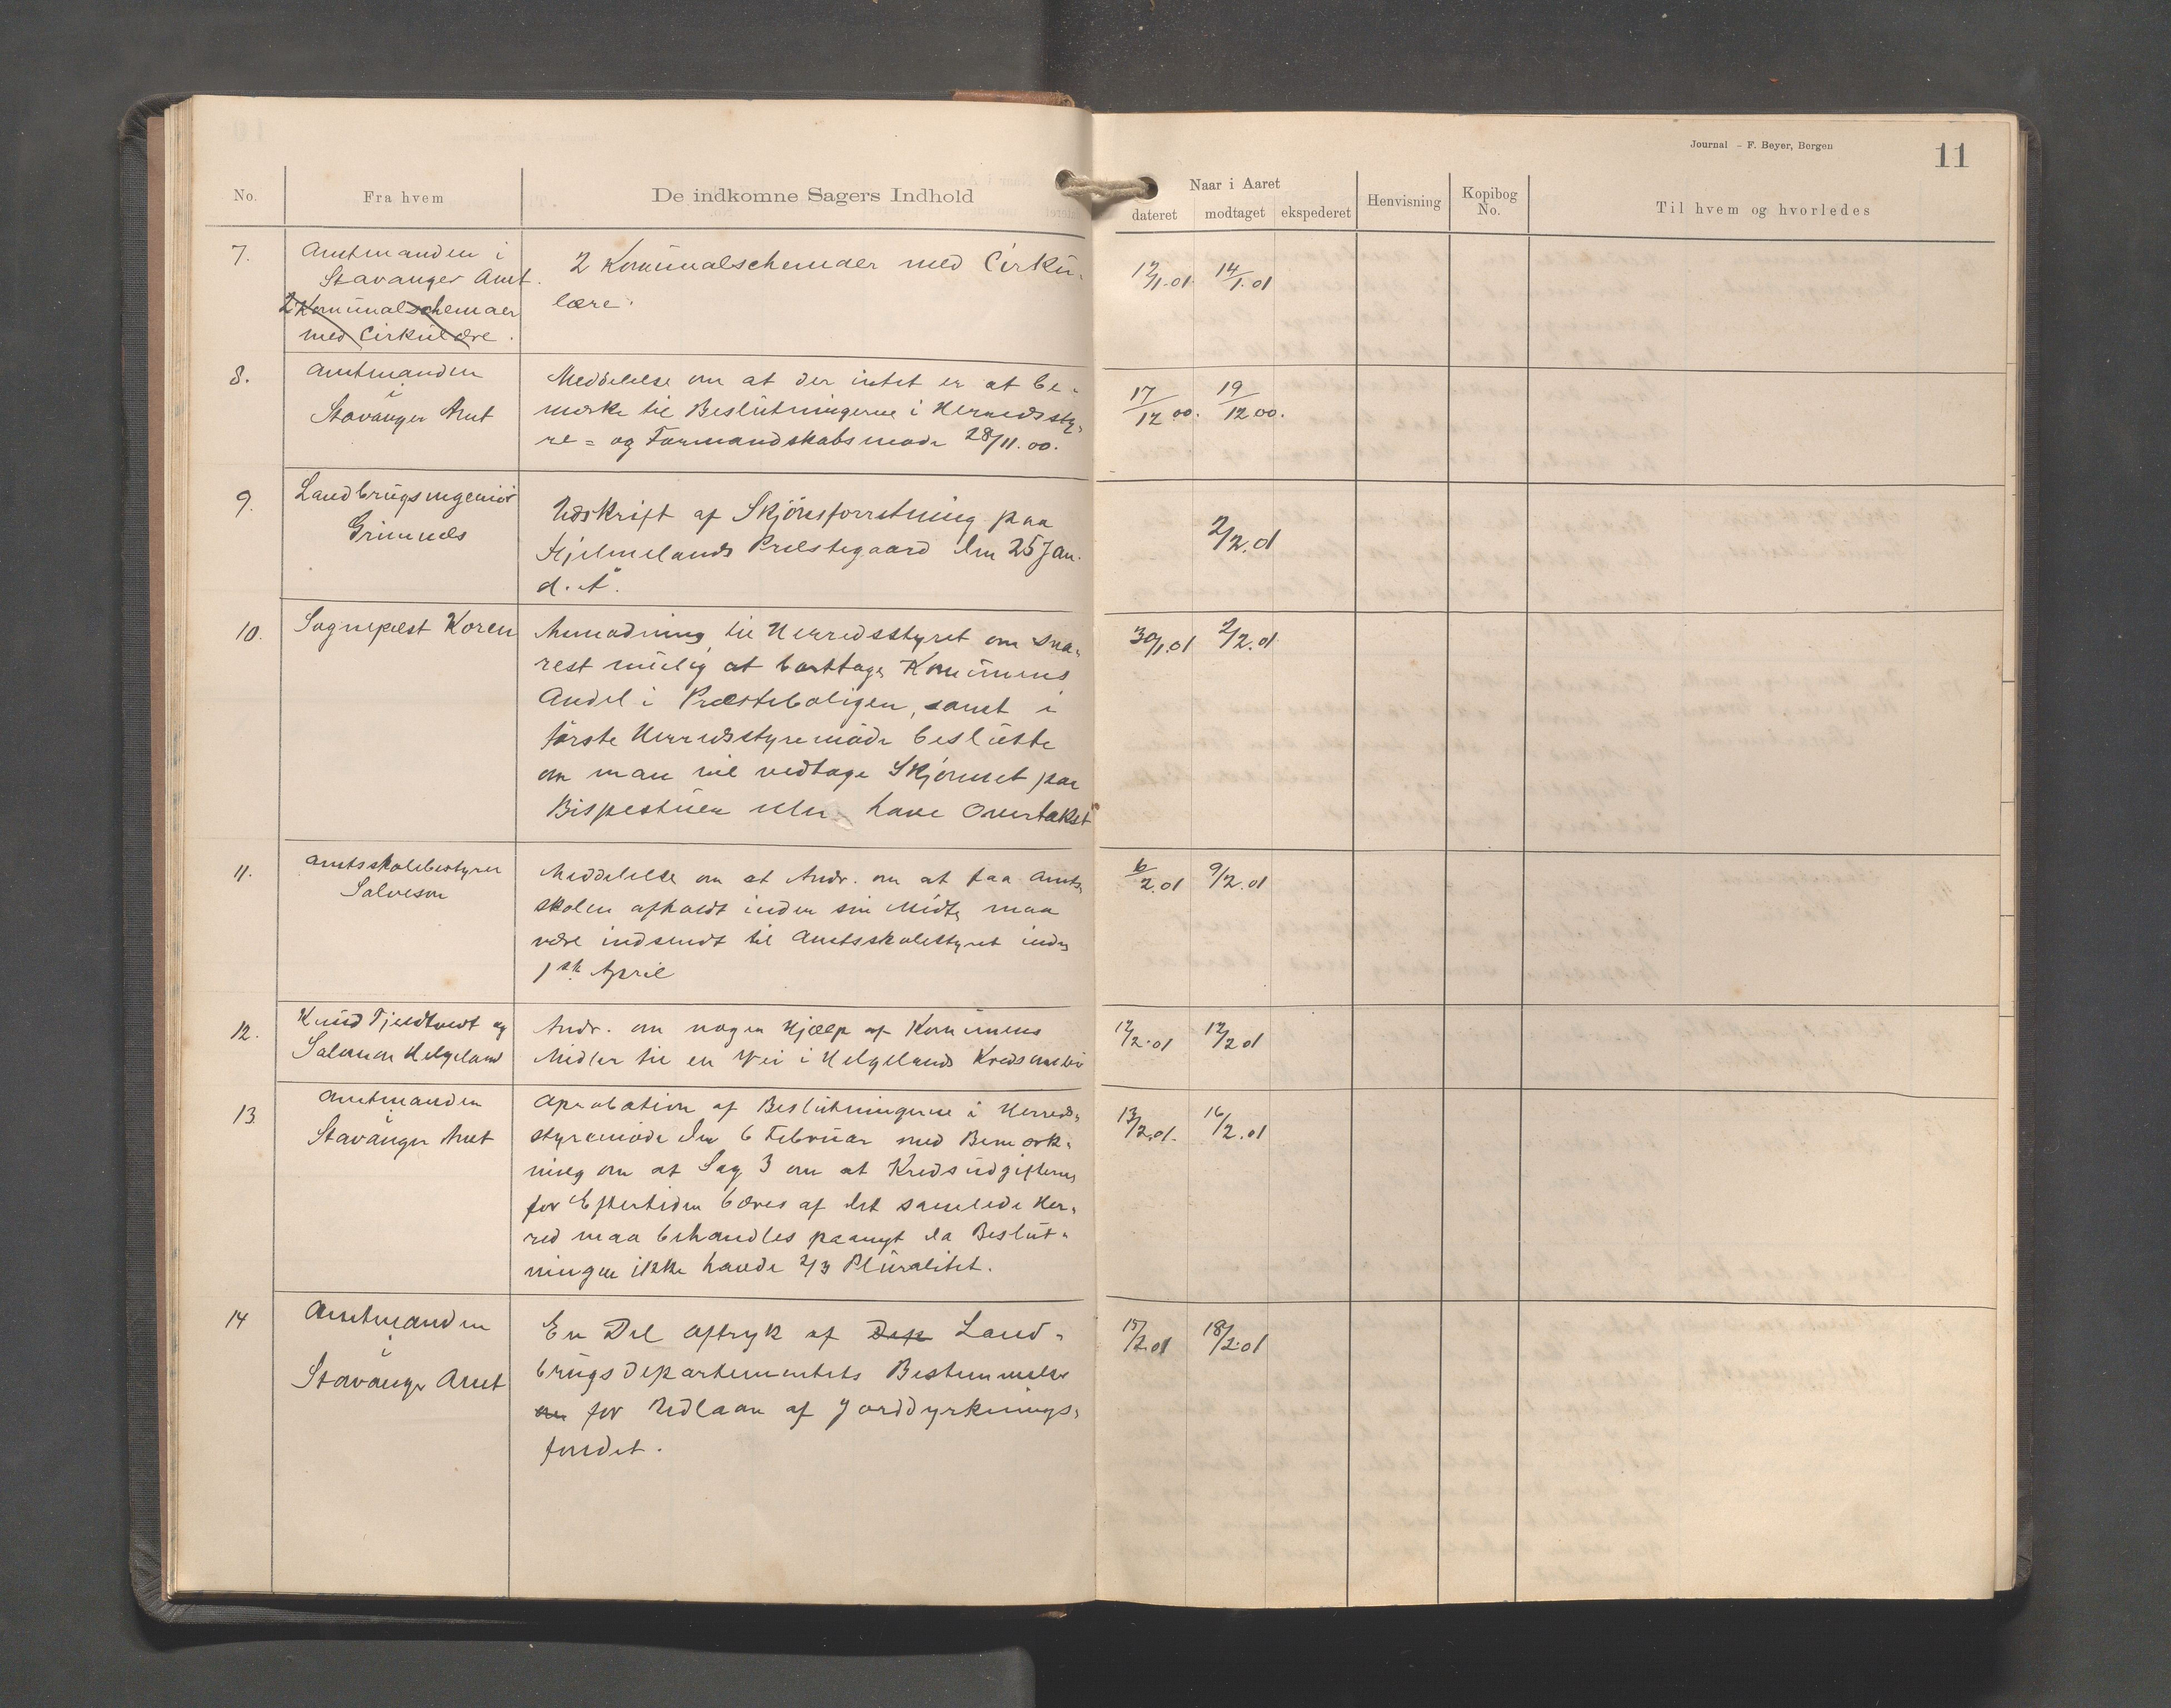 Journal - F. Beyer, Bergen
11
No.
Fra hvem
De indkomne Sagers Indhold
Naar i Aaret
dateret
modtaget
ekspederet
Henvisning
Kopibog No.
Til hvem og hvorledes
7.
Amtmanden i
Stavanger Amt.
2 Komunalschemaer
med Cirkulære.
2 Komunalschemaer med Cirku-
lære.
12/1.01
14/1.01
8.
Amtmanden
i
Stavanger Amt
Meddelelse om at der intet er at be-
mærke til Beslutningerne i Herredssty-
re= og Formandskabsmøde 28/11.00.
17/12 00.
19/12 00.
9.
Landbrugsingeniör
Grimnes
Udskrift af Skjönsforretning paa
Hjelmelands Præstegaard den 25 Jan.
d. A.
2/2.01
10.
Sognepræst Koren
Anmodning til Herredsstyret om sna-
rest mulig at borttage Komunens
Andel i Præsteboligen, samt i
förste Herredsstyremöde beslutte
om man vil vedtage Skjönnet paa
Bispestuen eller have Overtakst
30/1.01
2/2.01
11.
Amtsskolebestyrer
Salveson
Meddelelse om at Andr. om at faa Amts-
skolen afholdt inden sin Midte maa
være indsendt til Amtsskolestyret inden
1ste April
6/2.01
9/2.01
12.
Knud Tjeldtveit og
Salomon Helgeland
Andr. om nogen Hjælp af Komunens
Midler til en Vei i Helgelands Kreds
12/2.01
12/2 01
13.
Amtmanden
i
Stavanger Amt
Aprobation af Beslutningerne i Herreds-
styremöde den 6 Februar med Bemærk-
ning om at Sag 3 om at Kredsudgifterne
for Eftertiden bæres af det samlede Her-
red maa behandles paanyt da Beslut-
ningen ikke havde 2/3 Pluralitet.
13/2.01.
16/2.01
14
Amtmanden
i
Stavanger Amt
En Del Aftryk af Dep Land-
brugsdepartementets Bestemmelser
om for Udlaan af Jorddyrknings-
fondet.
15/2.01
18/2.01